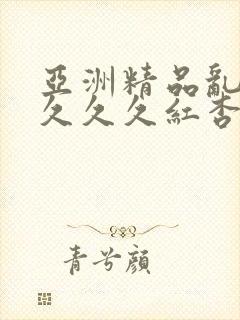 亞洲精品亂
久久久紅杏
青兮顏